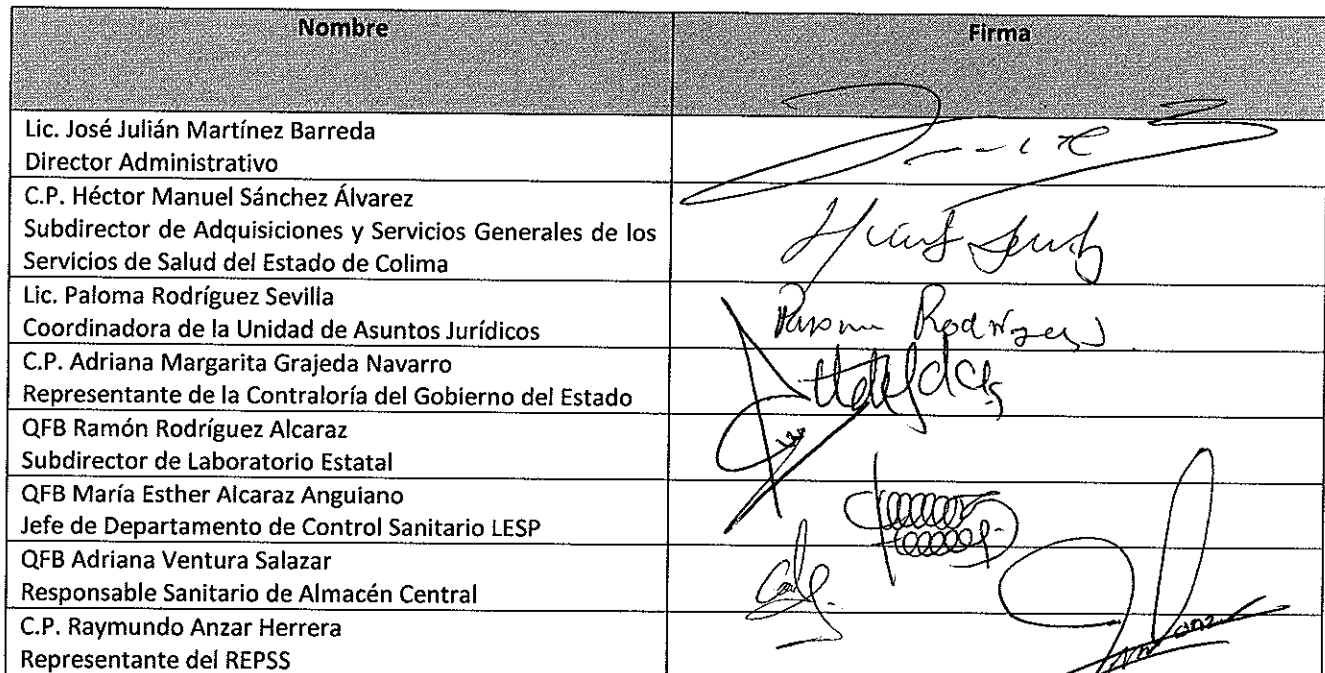 Nombre
Firma
Lic. José Julián Martínez Barreda
Director Administrativo
C.P. Héctor Manuel Sánchez Álvarez
Subdirector de Adquisiciones y Servicios Generales de los
Servicios de Salud del Estado de Colima
Lic. Paloma Rodríguez Sevilla
Coordinadora de la Unidad de Asuntos Jurídicos
Rodríguez
C.P. Adriana Margarita Grajeda Navarro
Representante de la Contraloría del Gobierno del Estado
QFB Ramón Rodríguez Alcaraz
Subdirector de Laboratorio Estatal
QFB María Esther Alcaraz Anguiano
Jefe de Departamento de Control Sanitario LESP
QFB Adriana Ventura Salazar
Responsable Sanitario de Almacén Central
C.P. Raymundo Anzar Herrera
Representante del REPSS